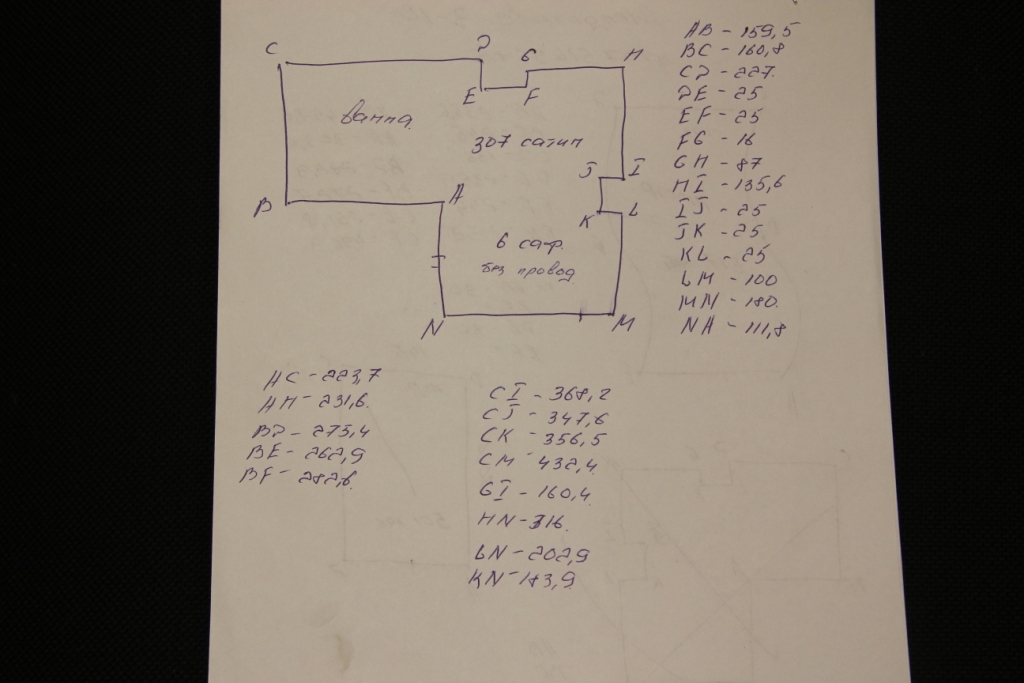 C
D
G
H
E
F
ванна
307 сатин
J
I
B
A
K
L
6 саф.
без провод
N
M
AB - 159,5
BC - 160,8
CD - 227
DE - 25
EF - 25
FG - 16
GH - 87
HI - 135,6
IJ - 25
JK - 25
KL - 25
LM - 100
MN - 180
NA - 111,8
AC - 223,7
AH - 231,6
BD - 275,4
BE - 262,9
BF - 282,6
CI - 368,2
CJ - 347,6
CK - 356,5
CM - 432,4
GI - 160,4
HN - 316
LN - 202,9
KN - 183,9